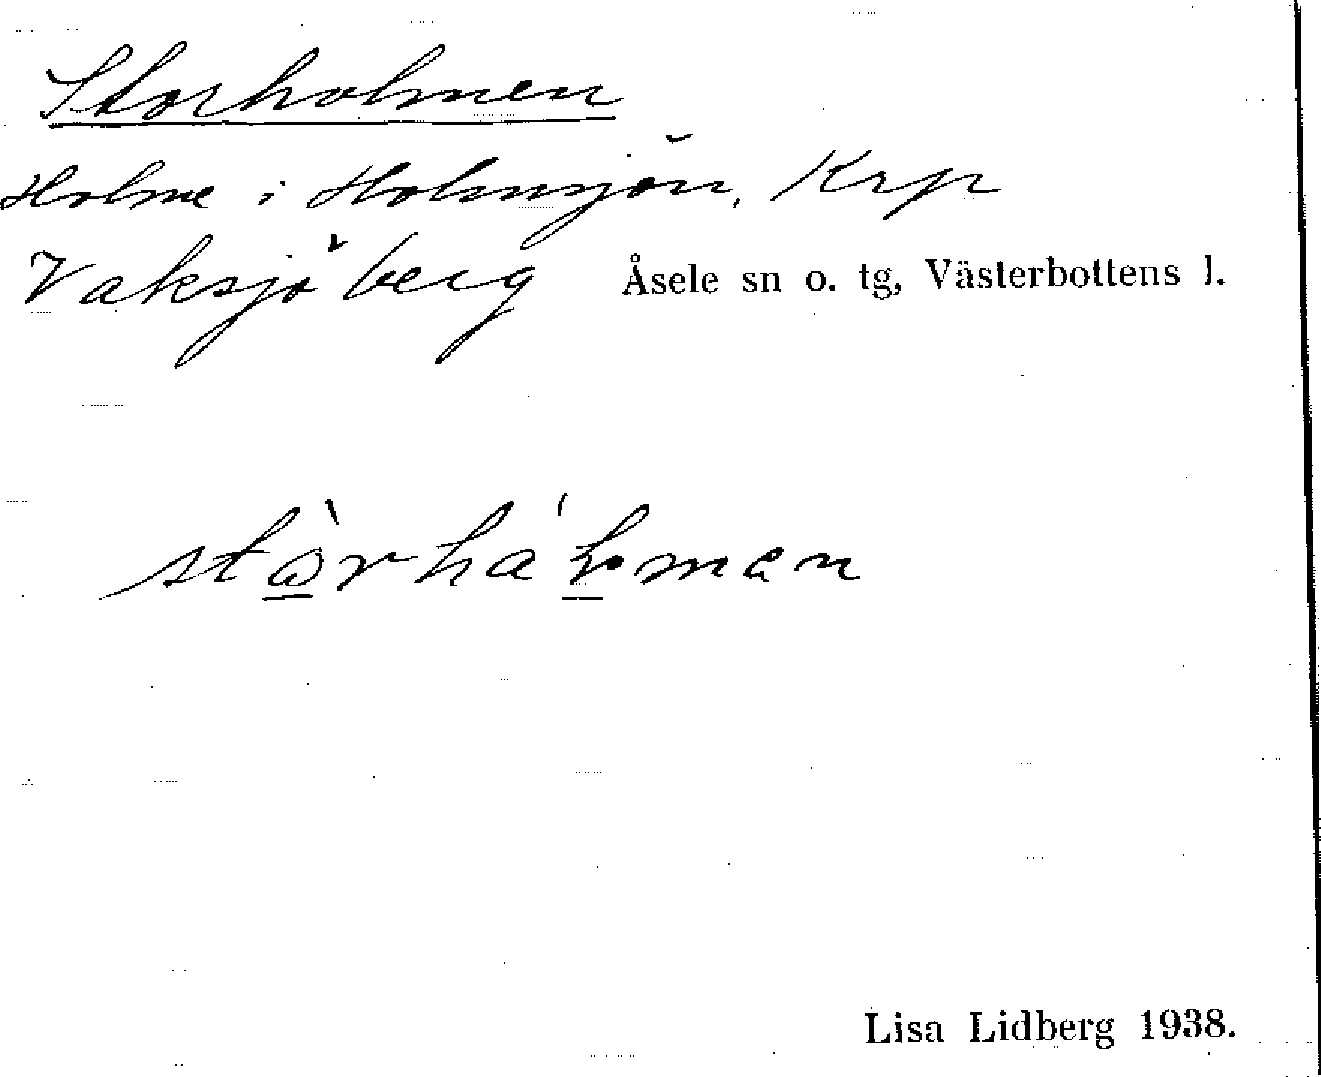 Storholmen
Holme i Holmsjön, Krp
Vaksjöberg Åsele sn o. tg, Västerbottens l.
Lisa Lidberg 1938.